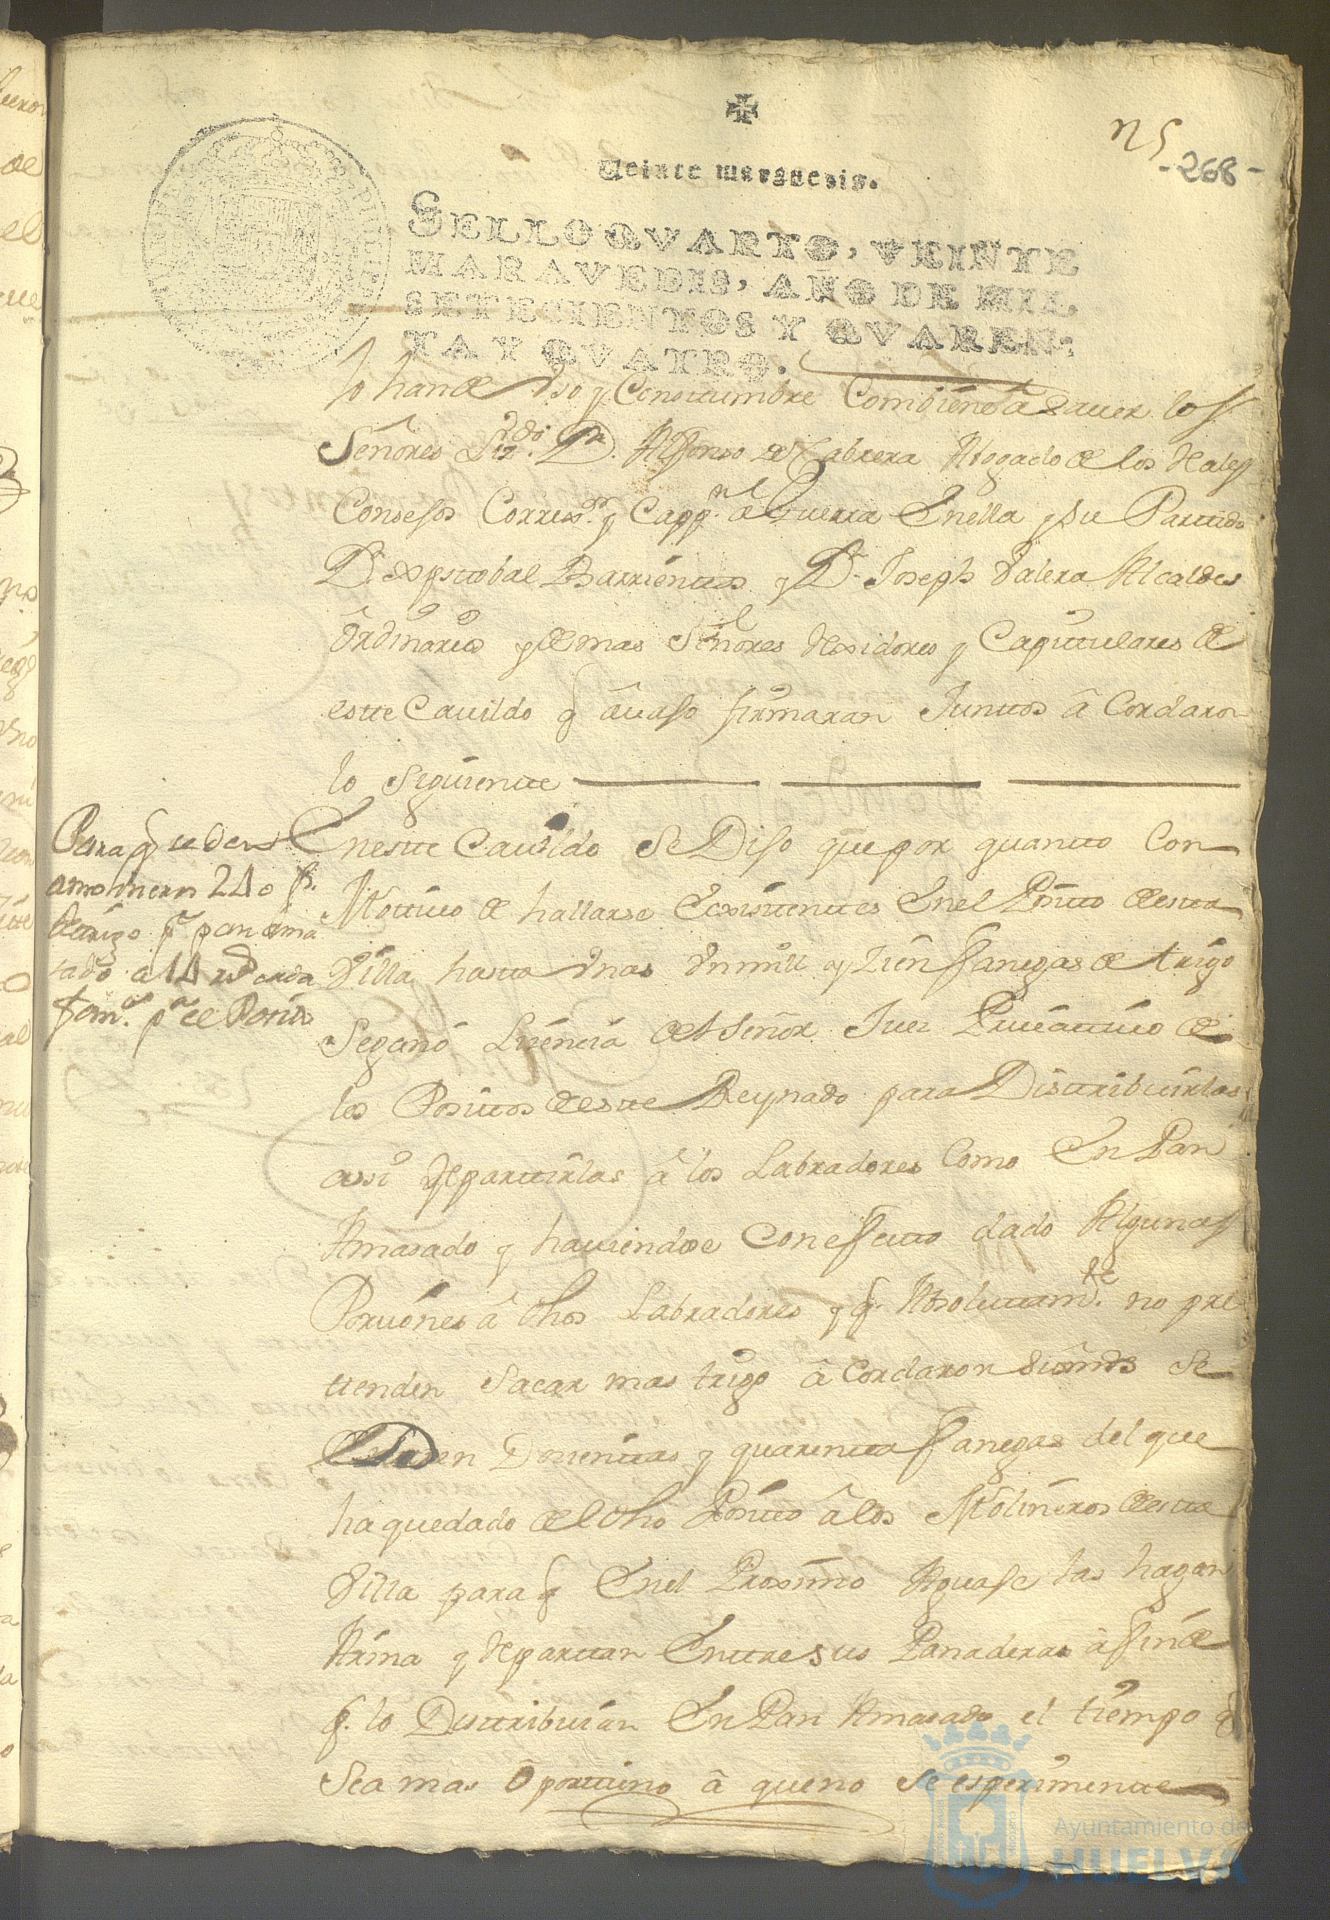 n 5
-268-
Veinte maravedis.
SELLO QVARTO, VEINTE
MARAVEDIS, AÑO DE MIL
SETECIENTOS Y QVAREN-
TA Y QVATRO.
lo han de vso y Costumbre Combiene a saver los
Señores Lizdo. Dn. Alfonso de Cabrera Abogado de los Reales
Consejos Correxor. y Cappn. a Guerra Enella y su Partido
Dn. Xpstobal Barrientos y Dn. Joseph Valera Alcaldes
Ordinarios y demas Señores Rexidores y Capitulares de
estte Cavildo q avajo firmaran Juntos â Cordaron
lo Siguiente
Para q se den
amolineros 240 fs.
de trigo pa. pan ama
sado a 14 rs. cada
fans. pa. el Posito
Enestte Cavildo Se Dijo que por quantto Con
Mottivo de hallarse Existtentes Enel Positto de estta
Villa hasta Vnas Vn mill y Zien fanegas de trigo
Se ganó Lizencia del Señor Juez Privattivo de
los Positos de estte Reynado para Distribuirlas
assi Repartirlas â los Labradores Como En Pan
Amasado y haviendose Con efecto dado Algunas
Porziones â dhos Labradores y q. Absoluttamte. no pre
ttenden Sacar mas trigo â Cordaron sus mds Se
den Dozientas y quarentta fanegas del que
ha quedado del dho Positto â los Molineros de estta
Villa para q Enel Proximo Aguaje las hagan
Arina y Repartan Entre sus Panaderas â fin de
q. lo Distribuian En Pan Amasado el tiempo q
Sea mas Oporttuno â que no se esperimentte
Ayuntamiento de
HUELVA